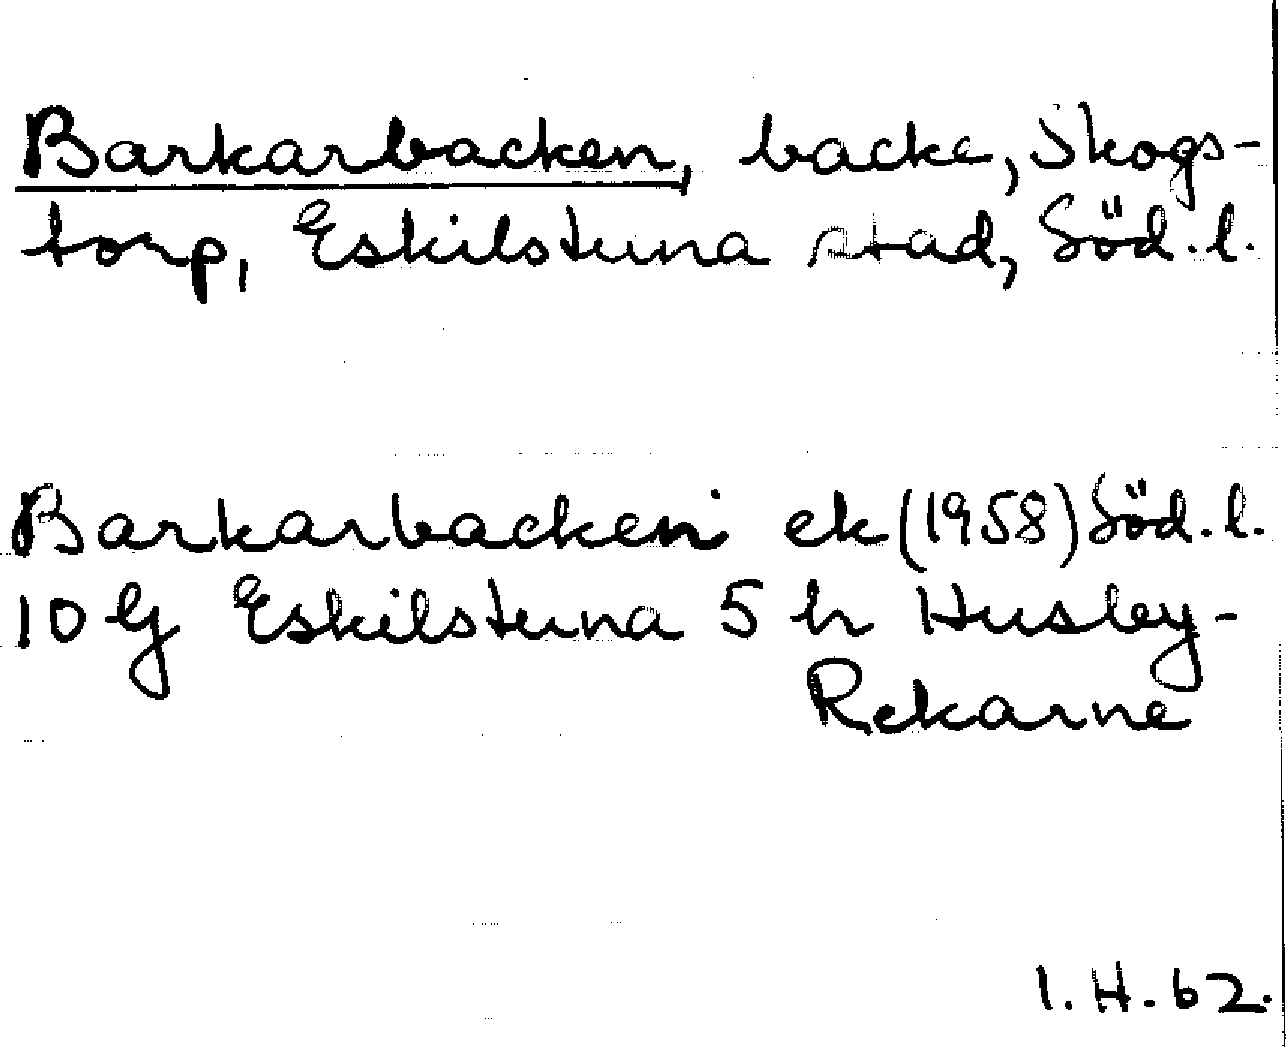 Barkarbacken, backe, Skogs-
torp, Eskilstuna stad, Söd. l.
Barkarbacken ek (1958) Söd. l.
10 G Eskilstuna 5 h Husby-
Rekarne
I. H. 62.